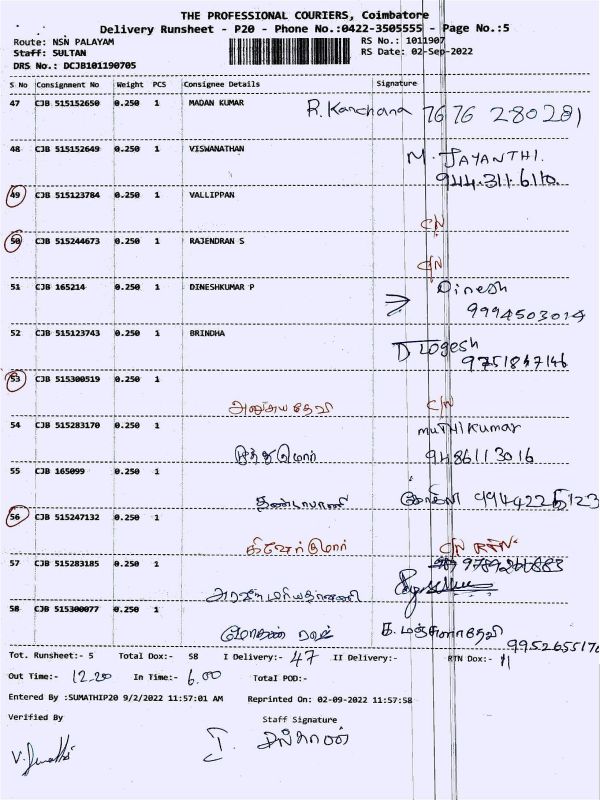 THE PROFESSIONAL COURIERS, Coimbatore
Delivery Runsheet - P20 - Phone No.:0422-3505555 - Page No.:5
Route: NSN PALAYAM RS No.: 1011907
Staff: SULTAN RS Date: 02-Sep-2022
DRS No.: DCJB101190705
S No Consignment No Weight PCS Consignee Details Signature
47 CJB 515152650 0.250 1 MADAN KUMAR R. Kanchana 7676 280281
48 CJB 515152649 0.250 1 VISWANATHAN M. JAYANTHI.
944.311.6110.
49 CJB 515123784 0.250 1 VALLIPPAN
C/N
50 CJB 515244673 0.250 1 RAJENDRAN S
C/N
51 CJB 165214 0.250 1 DINESHKUMAR P Dinesh
9994503014
52 CJB 515123743 0.250 1 BRINDHA
D Logesh
9751847146
53 CJB 515300519 0.250 1
C/N
54 CJB 515283170 0.250 1 muTHIKumar
9486113016
55 CJB 165099 0.250 1
தண்டபாணி 9944226123
56 CJB 515247132 0.250 1
C/N RTN
57 CJB 515283185 0.250 1
58 CJB 515300077 0.250 1
மோகன் ராஜ் க. மஞ்சுளாதேவி
Tot. Runsheet:- 5 Total Dox:- 58 I Delivery:- 47 II Delivery:- RTN Dox:- 11
Out Time:- 12.20 In Time:- 6.00 Total POD:-
Entered By :SUMATHIP20 9/2/2022 11:57:01 AM Reprinted On: 02-09-2022 11:57:58
Verified By Staff Signature